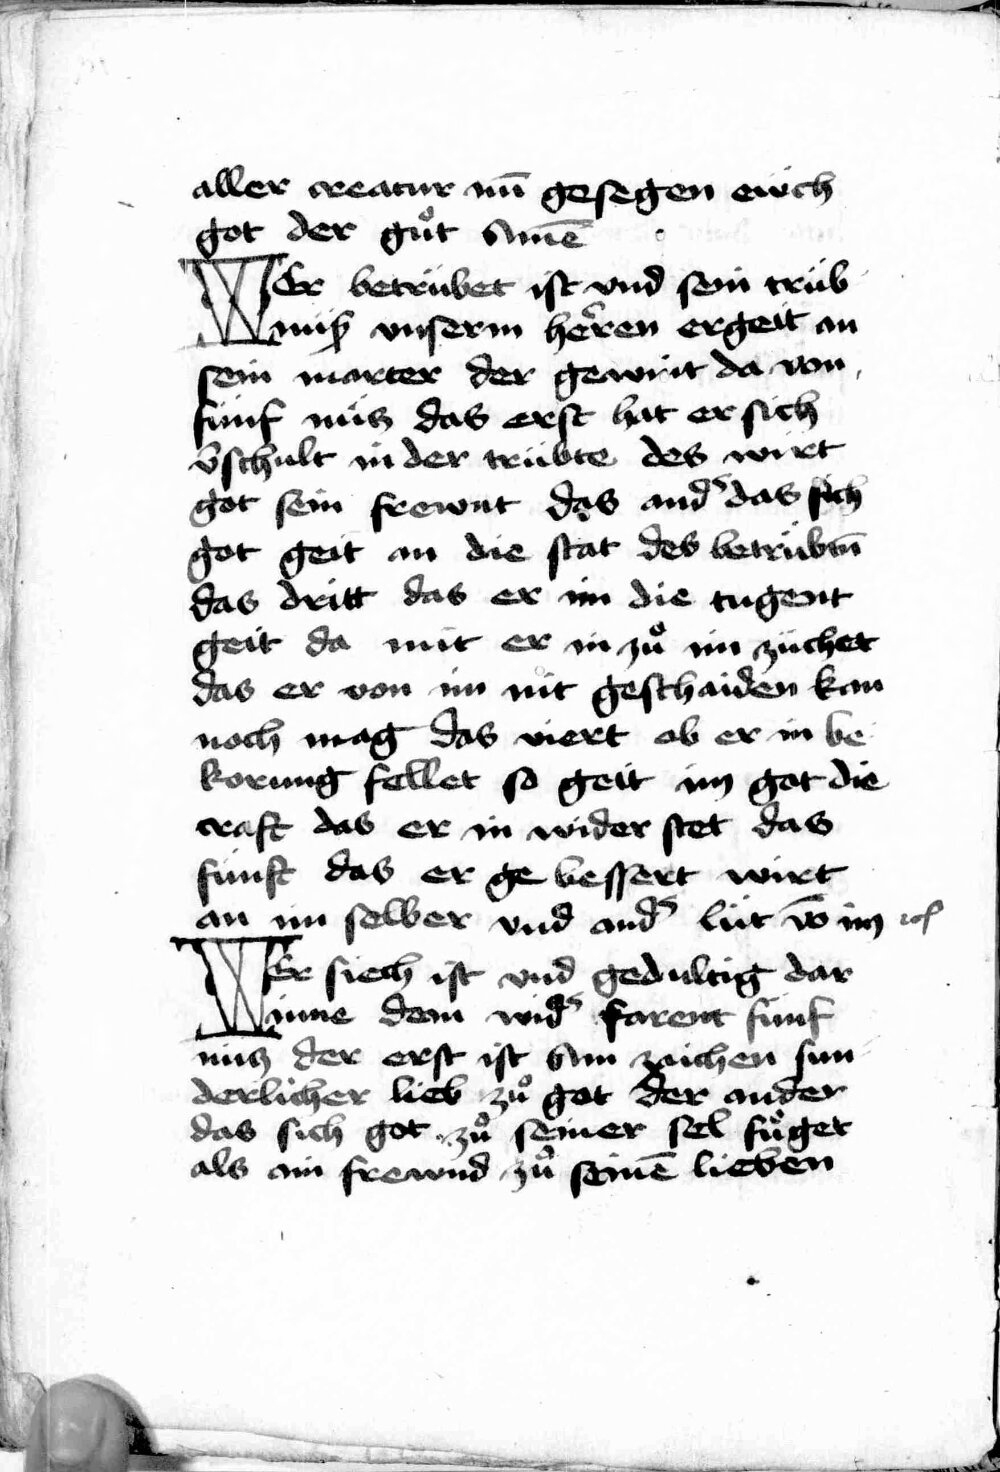 aller creatur nū gesegen ewch
got der gůt Amē
WEr betrübet ist vnd sein trüb
nüß vnserm herren ergeit an
sein marter der gewint da von
fünf nücz das erst hat er sich
v̄schult in der trübte des wirt
got sein frewnt das and᷒ das sich
got geit an die stat des betrübtñ
das dritt das er im die tugent
geit da mit er in zů im züchet
das er von im nit geschaiden kan
noch mag das viert ob er in be
korung fellet so geit im got die
craft das er in wider stet das
fünft das er ge bessert wirt
an im selber vnd and᷒ lüt vō im
WEr siech ist vnd gedultig dar
inne dem wid᷒ farent fünf
nücz der erst ist Ain zaichen sun
derlicher lieb zů got der ander
das sich got zů seiner sel fůget
als ain frewnd zů seinē lieben